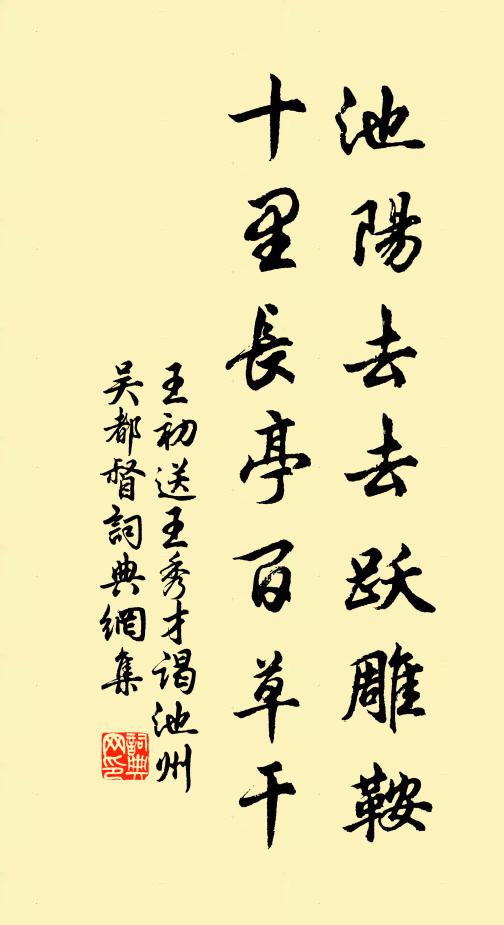 池陽去去跃雕鞍
十里長亭百草干
王初送王秀才謁池州
吴都督詞典網集
詞典网印